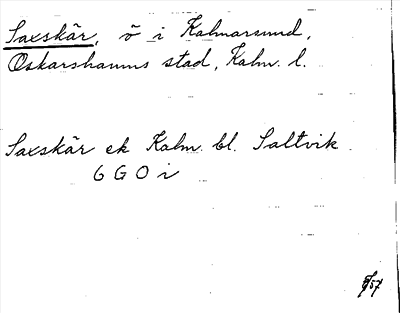 Saxskär, ö i Kalmarsund,
Oskarshamns stad, Kalm. l.
Saxskär ek Kalm. bl. Saltvik
6 G 0 i